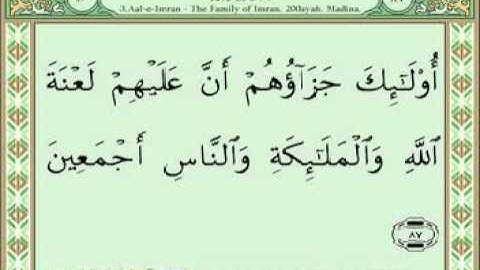 3.Aal-e-Imran - The Family of Imran. 200ayah. Madina.
أُوْلَـٰٓئِكَ جَزَآؤُهُمْ أَنَّ عَلَيْهِمْ لَعْنَةَ
ٱللَّهِ وَٱلْمَلَـٰٓئِكَةِ وَٱلنَّاسِ أَجْمَعِينَ
٨٧